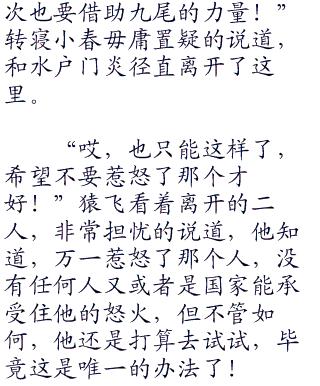 次也要借助九尾的力量！”
转寝小春毋庸置疑的说道，
和水户门炎径直离开了这
里。
“哎，也只能这样了，
希望不要惹怒了那个才
好！”猿飞看着离开的二
人，非常担忧的说道，他知
道，万一惹怒了那个人，没
有任何人又或者是国家能承
受住他的怒火，但不管如
何，他还是打算去试试，毕
竟这是唯一的办法了！